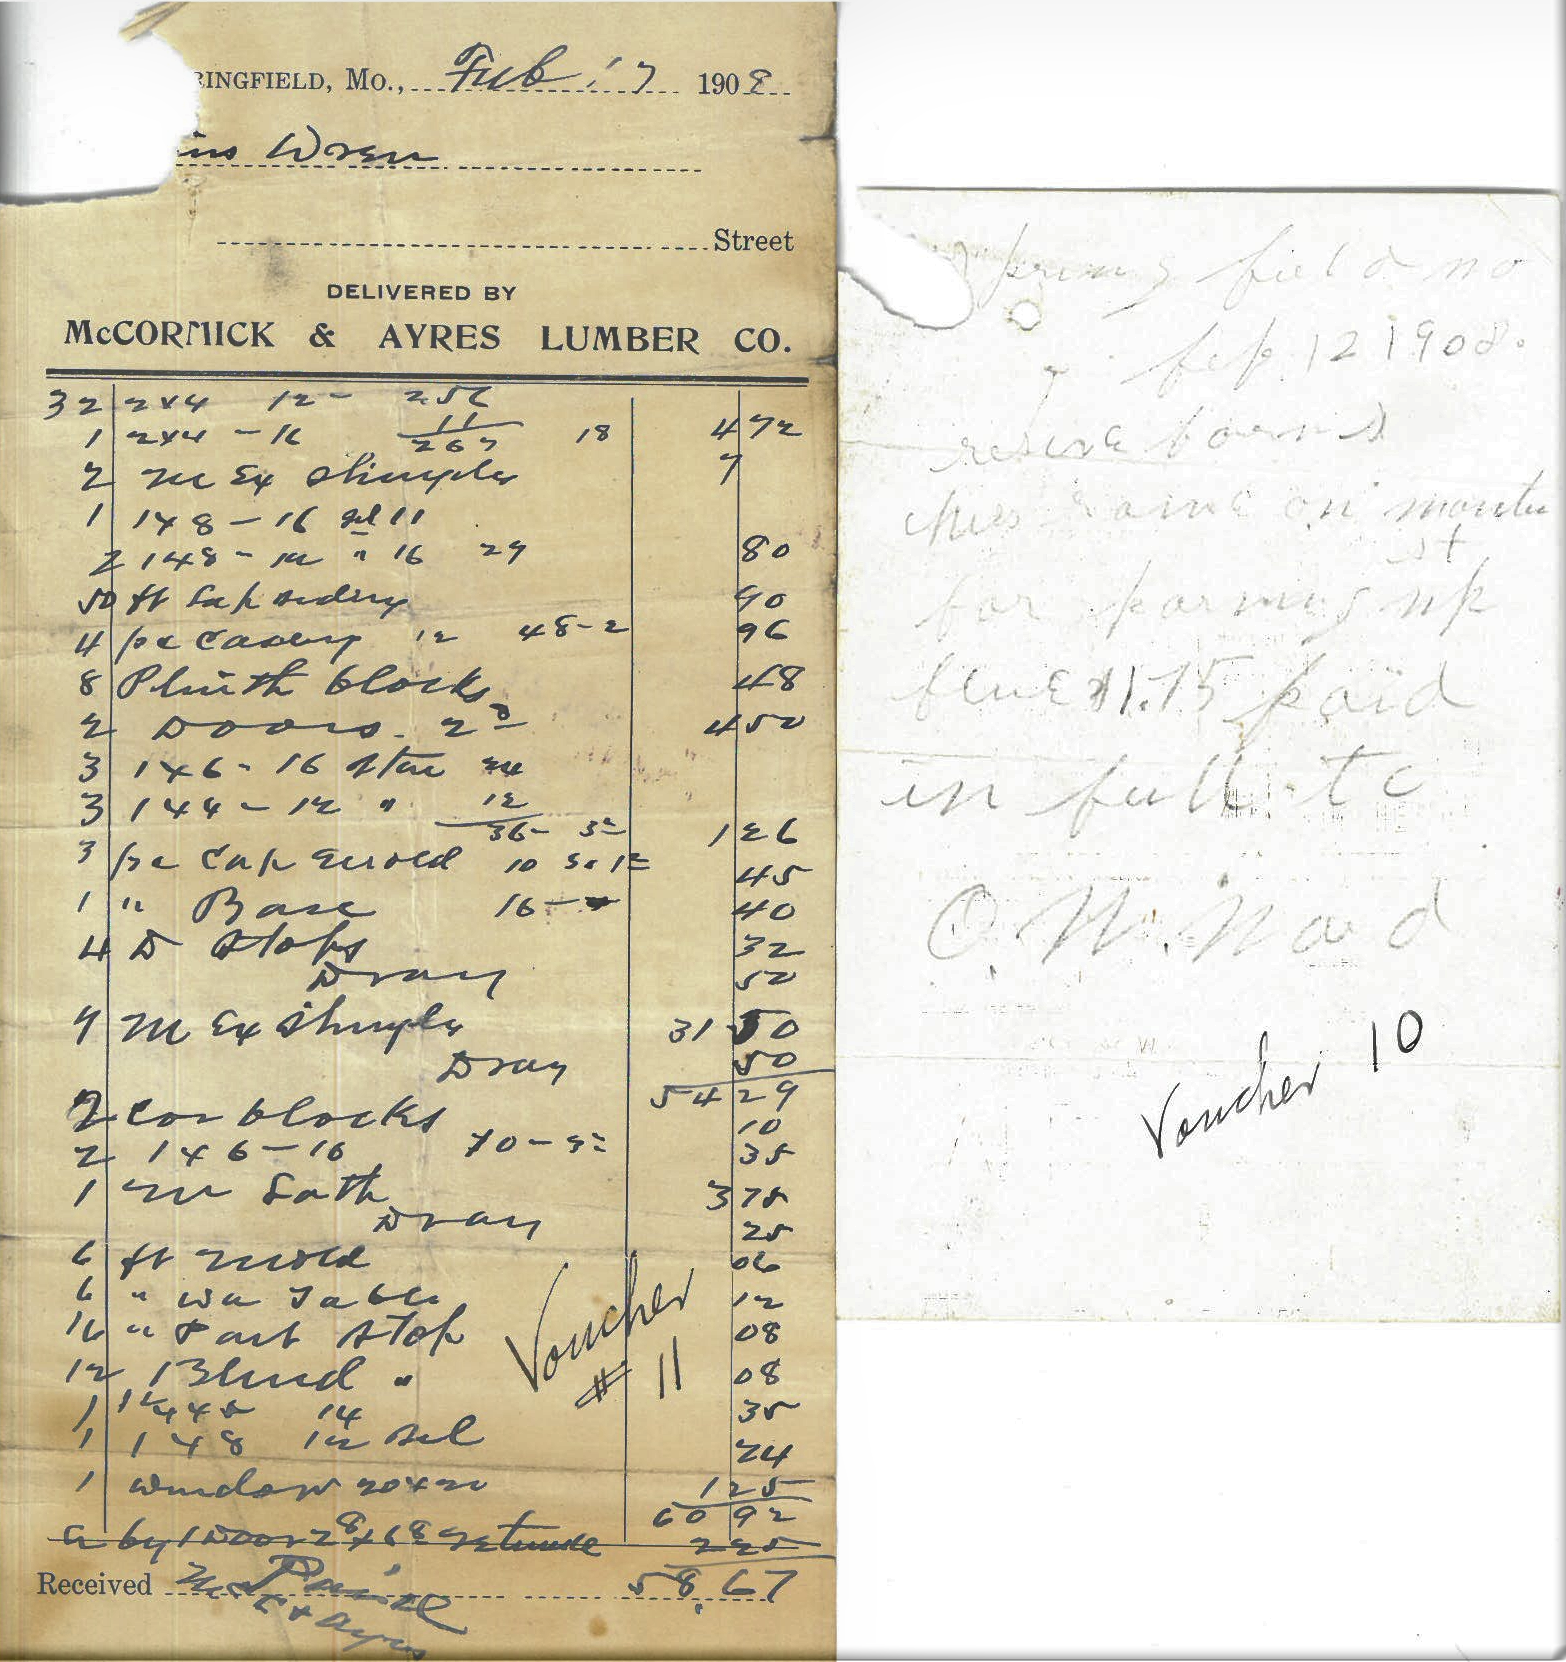 RINGFIELD, Mo., Feb 17 1908
Wren
Street
DELIVERED BY
McCORMICK & AYRES LUMBER CO.
32 2x4 12 - 256
1 2x4 - 16 11 267 18 4 72
2 M Ex Shingles 7
1 1x8 - 16 sel 11
2 1x8 - " 16 29 80
50 ft Lap siding 90
4 pc Caseing 12 48-2 96
8 Plinth blocks 48
2 Doors. 2 8 4 50
3 1x6 - 16 star 24
3 1x4 - 12 " 12
36- 3 1 26
3 pc Cap mold 10 45
1 " Base 16 - 40
4 D Stops 32
Dray 50
9 M Ex Shingles 31 50
Dray 50
54 29
2 Cor blocks 10
2 1x6-16 35
1 M Lath 3 75
Dray 25
6 ft mold 06
6 " Wa Table 12
16 " Part Stop 08
12 Blind " 08
1 14 35
1 1x8 12 sel 24
1 window 20x20 1 25
60 92
by 1 Door 2 8 x 6 8 2 25
Received Paid 58.67
& Ayres
Voucher
# 11
pring field mo
feb 12 1908.
on
st
for up
$1.75 paid
in full to
O. W.
Voucher 10